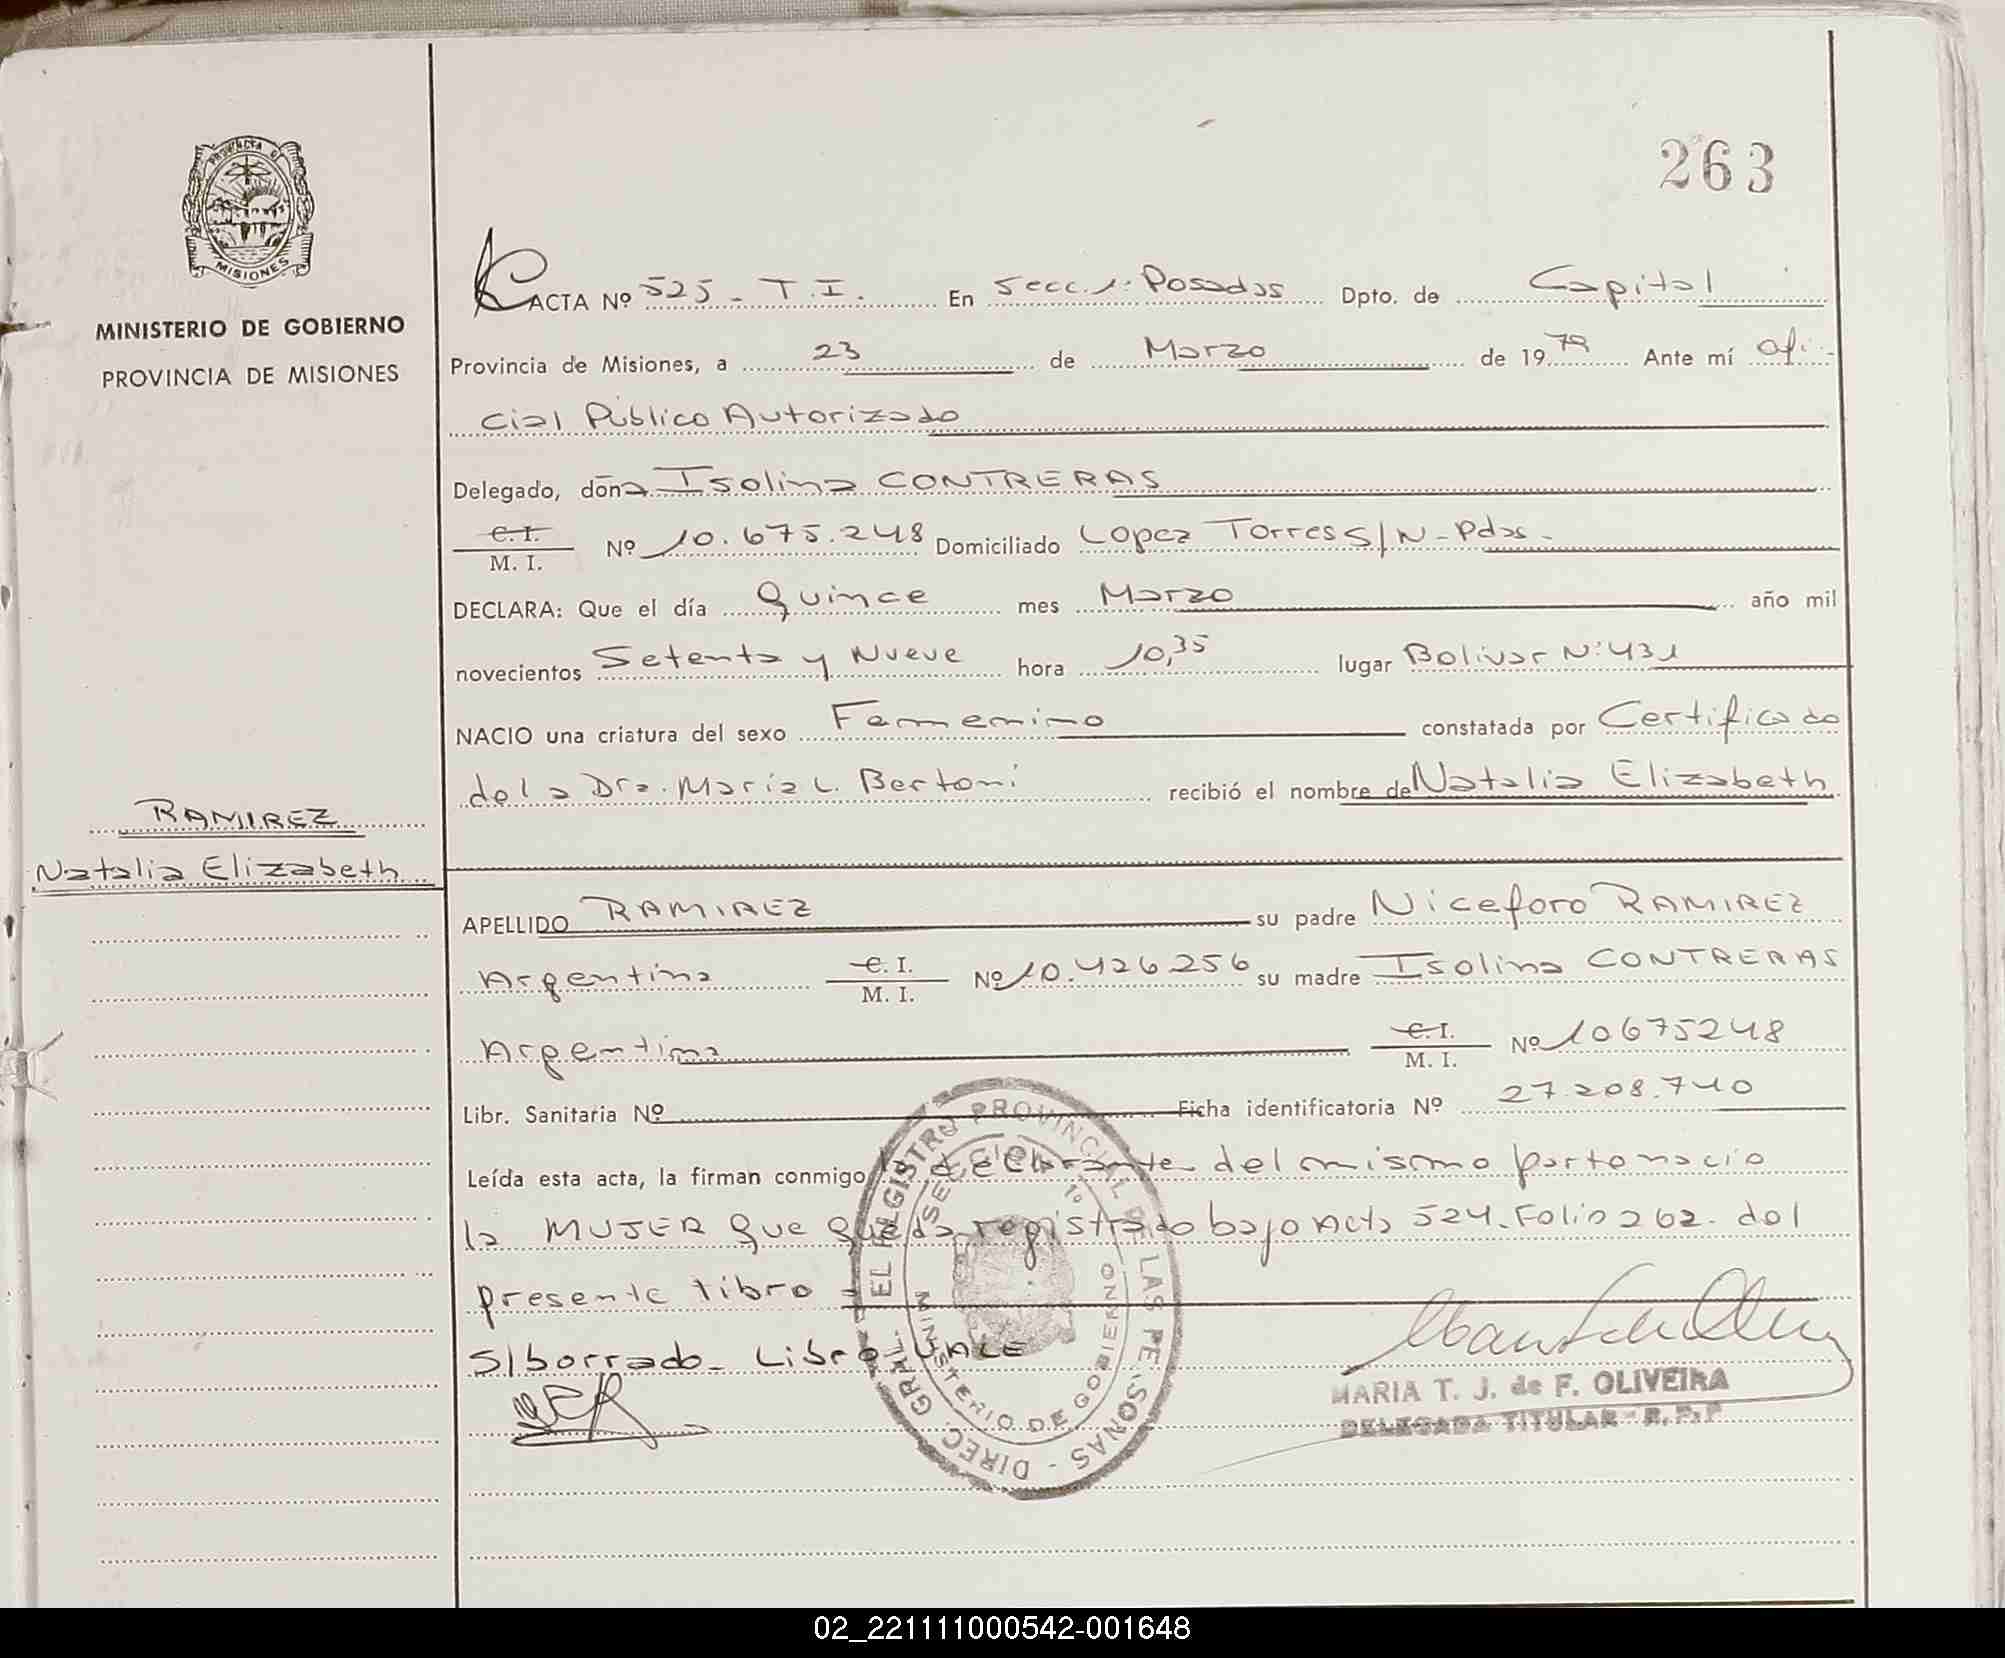 263
PROVINCIA DE
MISIONES
MINISTERIO DE GOBIERNO
PROVINCIA DE MISIONES
ACTA Nº 525 - T.I. En Secc. 1: Posadas Dpto. de Capital
Provincia de Misiones, a 23 de Marzo de 1979 Ante mí Ofi-
cial Público Autorizado
Delegado, doña Isolina CONTRERAS
C. I.
M. I.
Nº 10.675.248 Domiciliado Lopez Torres S/N - Pdas -
DECLARA: Que el día Quince mes Marzo año mil
novecientos Setenta y Nueve hora 10,35 lugar Bolivar Nº 431
NACIO una criatura del sexo Femenino constatada por Certificado
de la Dra. Maria L. Bertoni recibió el nombre de Natalia Elizabeth
RAMIREZ
Natalia Elizabeth
APELLIDO RAMIREZ su padre Niceforo RAMIREZ
Argentina C. I. M. I. Nº 10.426.256 su madre Isolina CONTRERAS
Argentina C. I. M. I. Nº 10675248
Libr. Sanitaria Nº Ficha identificatoria Nº 27.208.740
Leída esta acta, la firman conmigo la declarante del mismo parto nacio
la MUJER que queda registrado bajo Acta 524. Folio 262. del
presente libro =
S/borrado - Libro VALE
MARIA T. J. de F. OLIVEIRA
DELEGADA TITULAR - R. P. P
DIREC. GRAL. EL REGISTRO PROVINCIAL DE LAS PE.SONAS -
SECCION 1º
MINISTERIO DE GOBIERNO
02_221111000542-001648